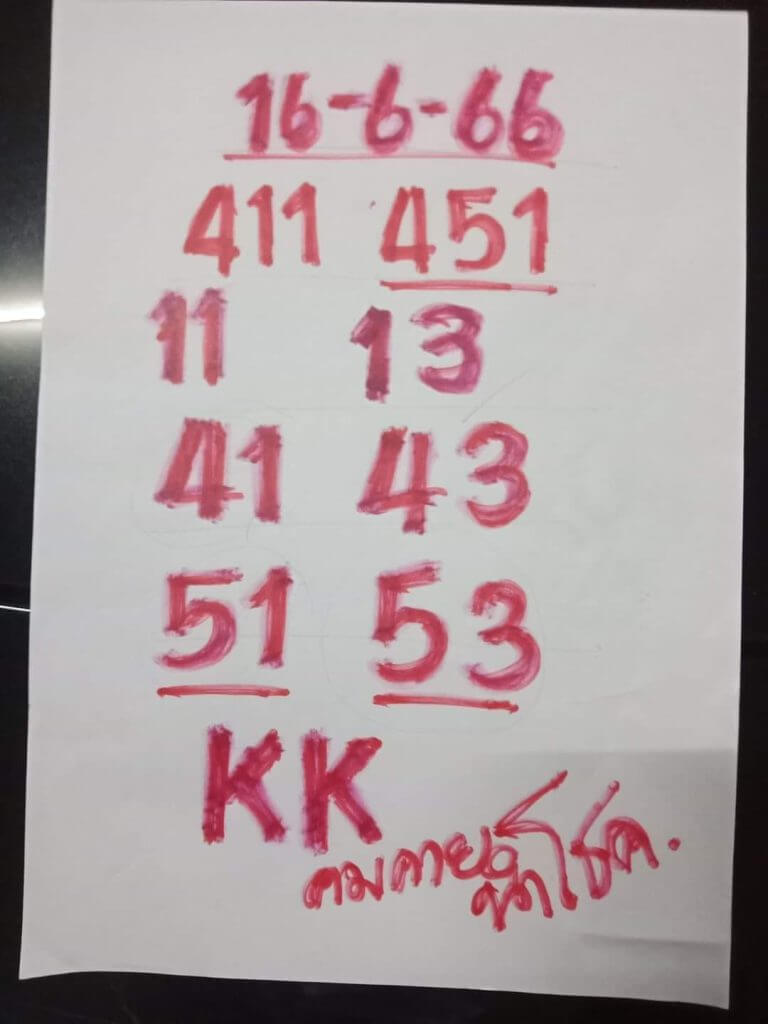 16-6-66
411 451
11 13
41 43
51 53
KK
โชค.